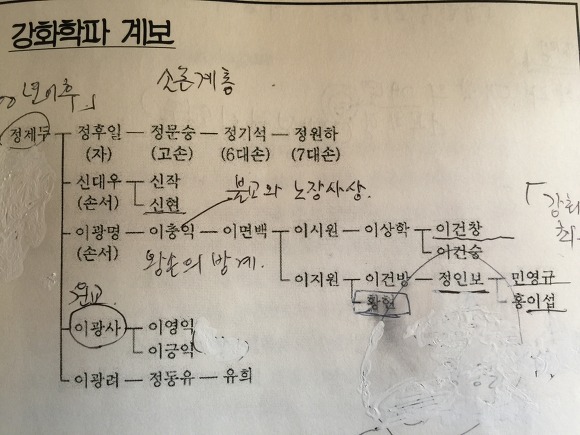 강화학파 계보
소론계통
년이후」
정제두 정후일 — 정문승 — 정기석 — 정원하
(자) (고손) (6대손) (7대손)
신대우 신작
(손서) 신현
불교와 노장사상.
이광명 — 이충익 — 이면백 이시원 — 이상학 이건창
(손서) 이건승
왕손의 방계.
이지원 — 이건방 — 정인보 민영규
황현 홍이섭
이광사 이영익
이긍익
이광려 — 정동유 — 유희
「강화
최